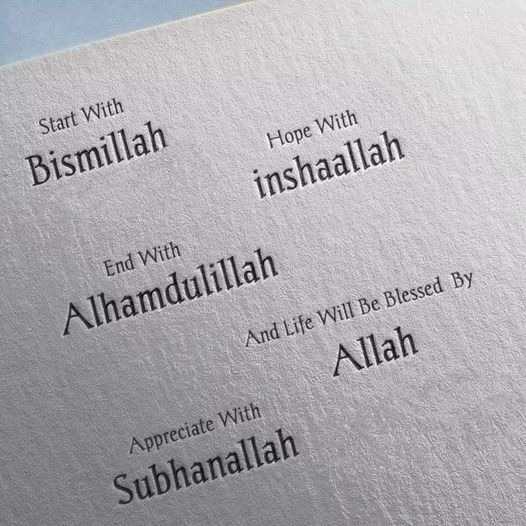 Start With
Bismillah
End With
Alhamdulillah
Appreciate With
Subhanallah
Hope With
inshaallah
And Life Will Be Blessed By
Allah